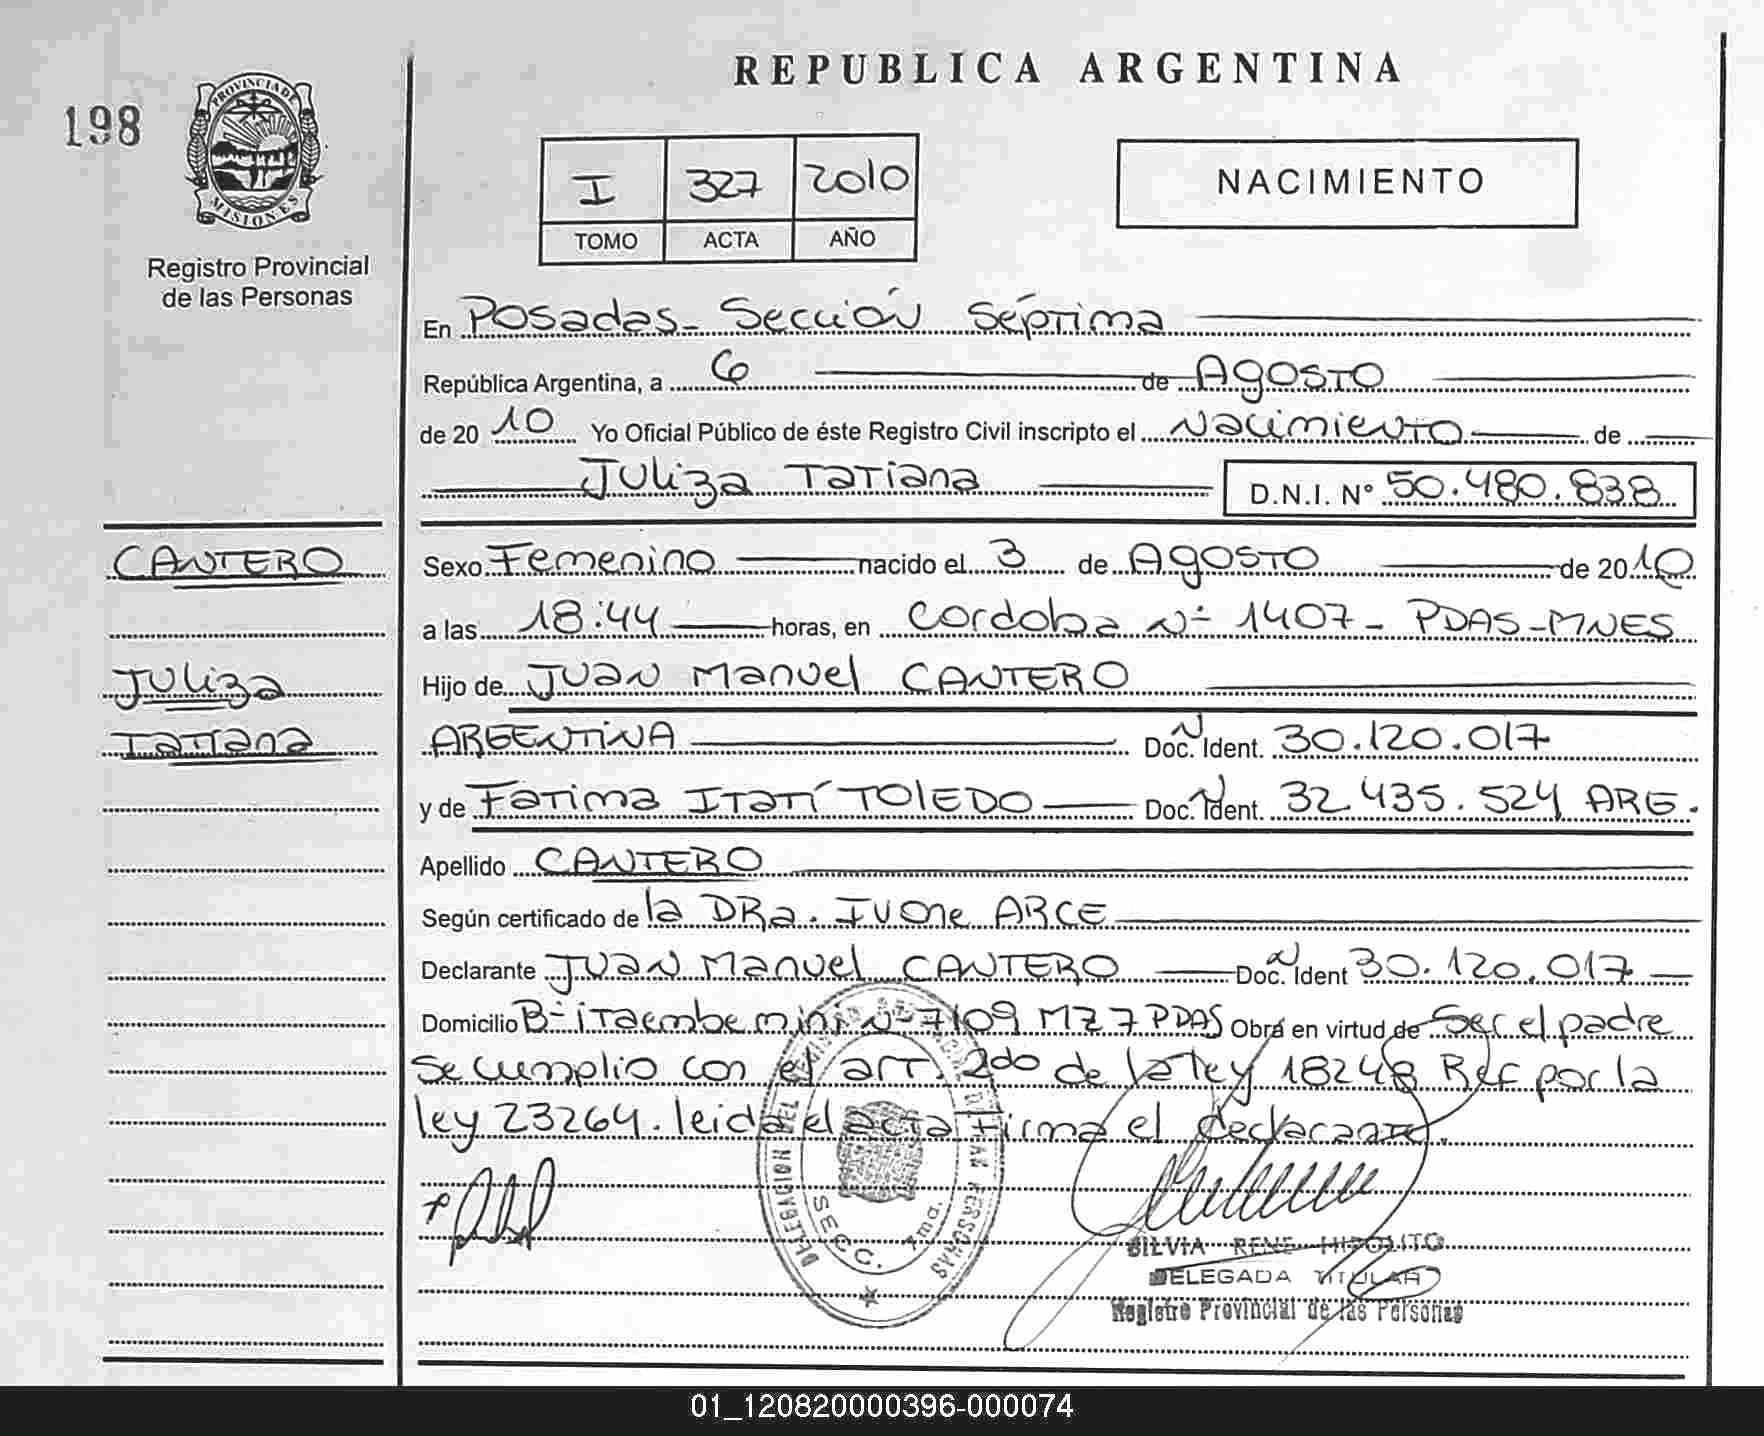 REPUBLICA ARGENTINA
198
PROVINCIA DE
MISIONES
Registro Provincial
de las Personas
I 327 2010
TOMO ACTA AÑO
NACIMIENTO
En Posadas - Sección Séptima
República Argentina, a 6 de Agosto
de 20 10 Yo Oficial Público de éste Registro Civil inscripto el Nacimiento de
Juliza Tatiana D.N.I. N° 50.480.838
CANTERO
Juliza
Tatiana
Sexo Femenino nacido el 3 de Agosto de 2010
a las 18:44 horas, en Cordoba N° 1407 - PDAS-MNES
Hijo de Juan Manuel CANTERO
ARGENTINA Doc. N Ident. 30.120.017
y de Fatima Itatí TOLEDO Doc. N Ident. 32.435.524 ARG.
Apellido CANTERO
Según certificado de la DRa. Ivone ARCE
Declarante Juan Manuel CANTERO Doc. N Ident 30.120.017
Domicilio B° itaembe mini N° 7109 MZ 7 PDAS Obra en virtud de Ser el padre
Se cumplio con el art. 2do de la ley 18248 Ref por la
ley 23264. leida el acta firma el declarante.
DELEGACION DEL REGISTRO PROVINCIAL DE LAS PERSONAS
SECC. 7ma.
SILVIA RENE HIPOLITO
DELEGADA TITULAR
Registro Provincial de las Personas
01_120820000396-000074